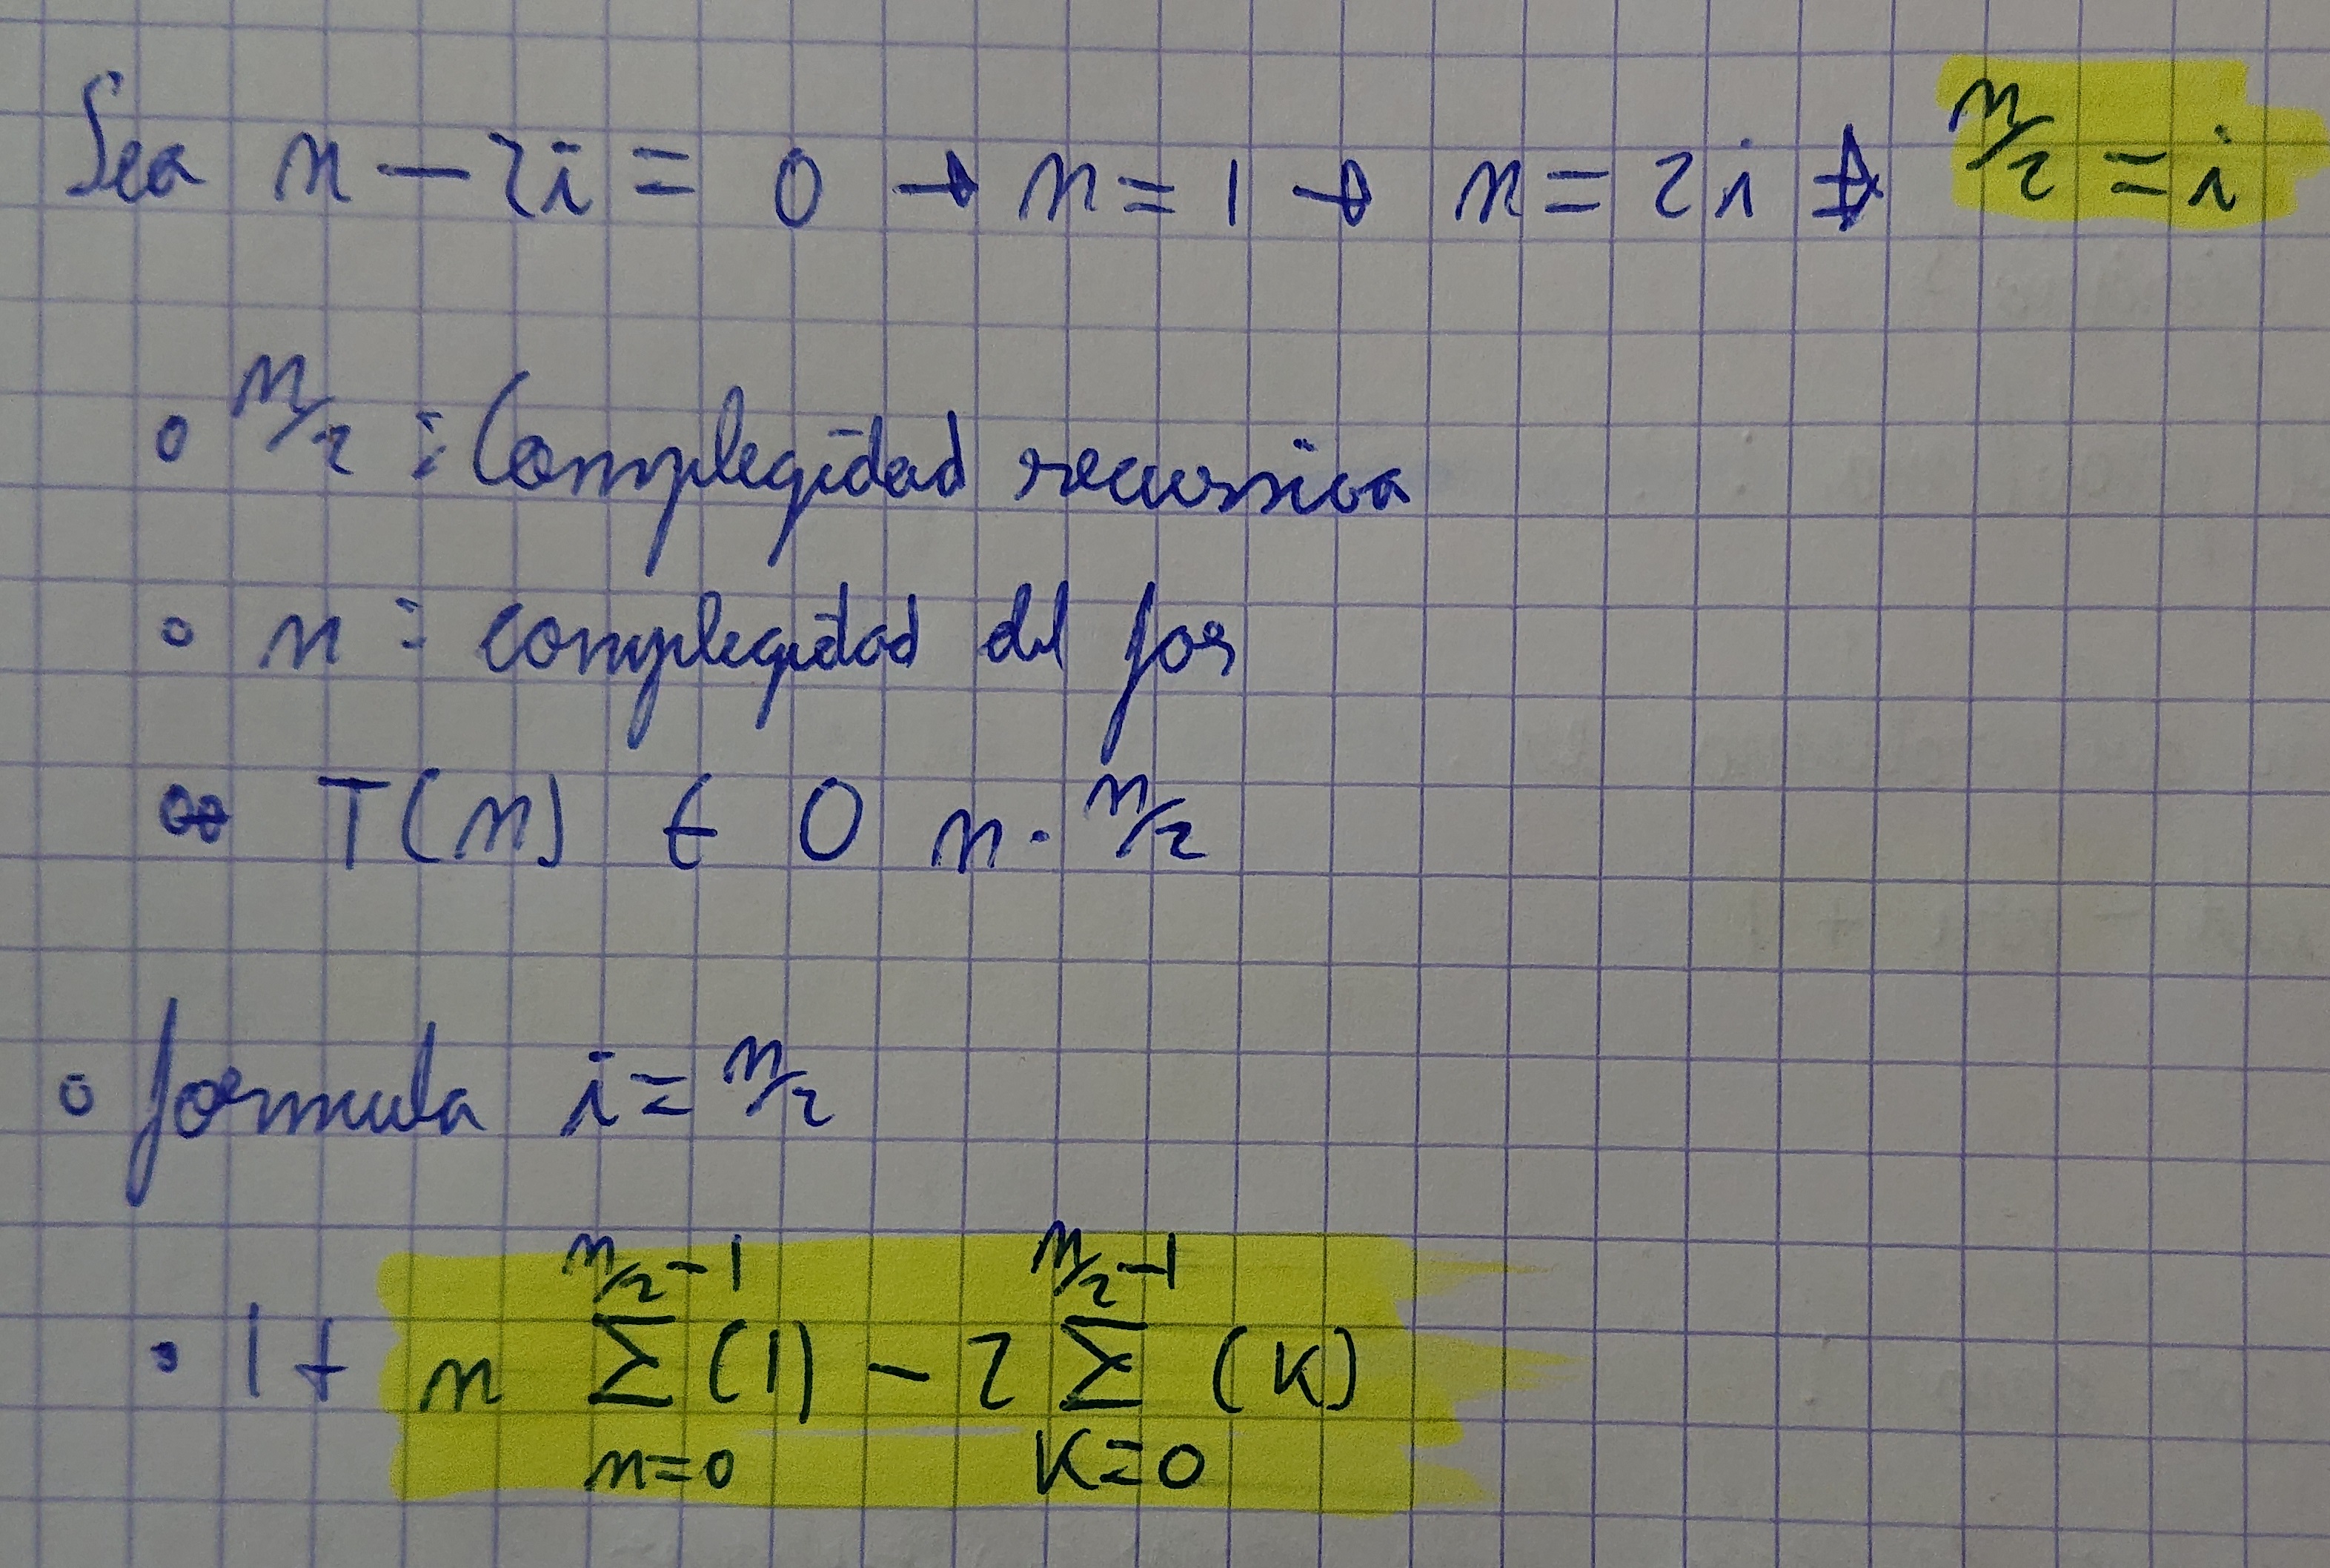 Sea n - 2i = 0 → n = 1 → n = 2i → n/2 = i
o n/2 : Complegidad recursiva
o n : complegidad del for
T(n) ∈ O n · n/2
o formula i = n/2
n/2-1 n/2-1
· 1 + n Σ (1) - 2 Σ (K)
n=0 K=0